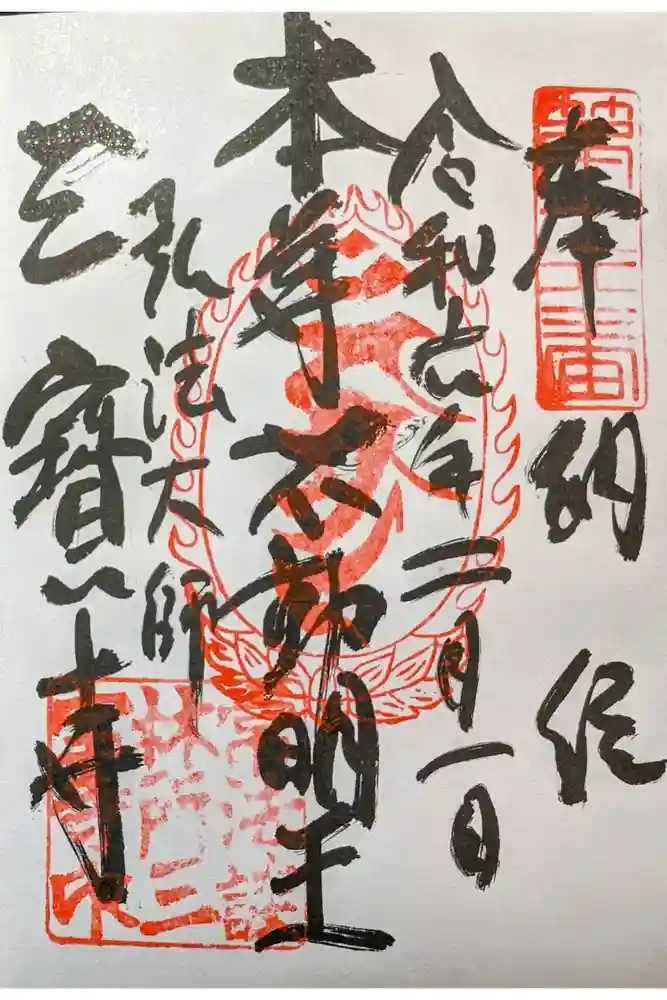 奉納経
令和六年二月一日
本尊不動明王
弘法大師
三寶寺